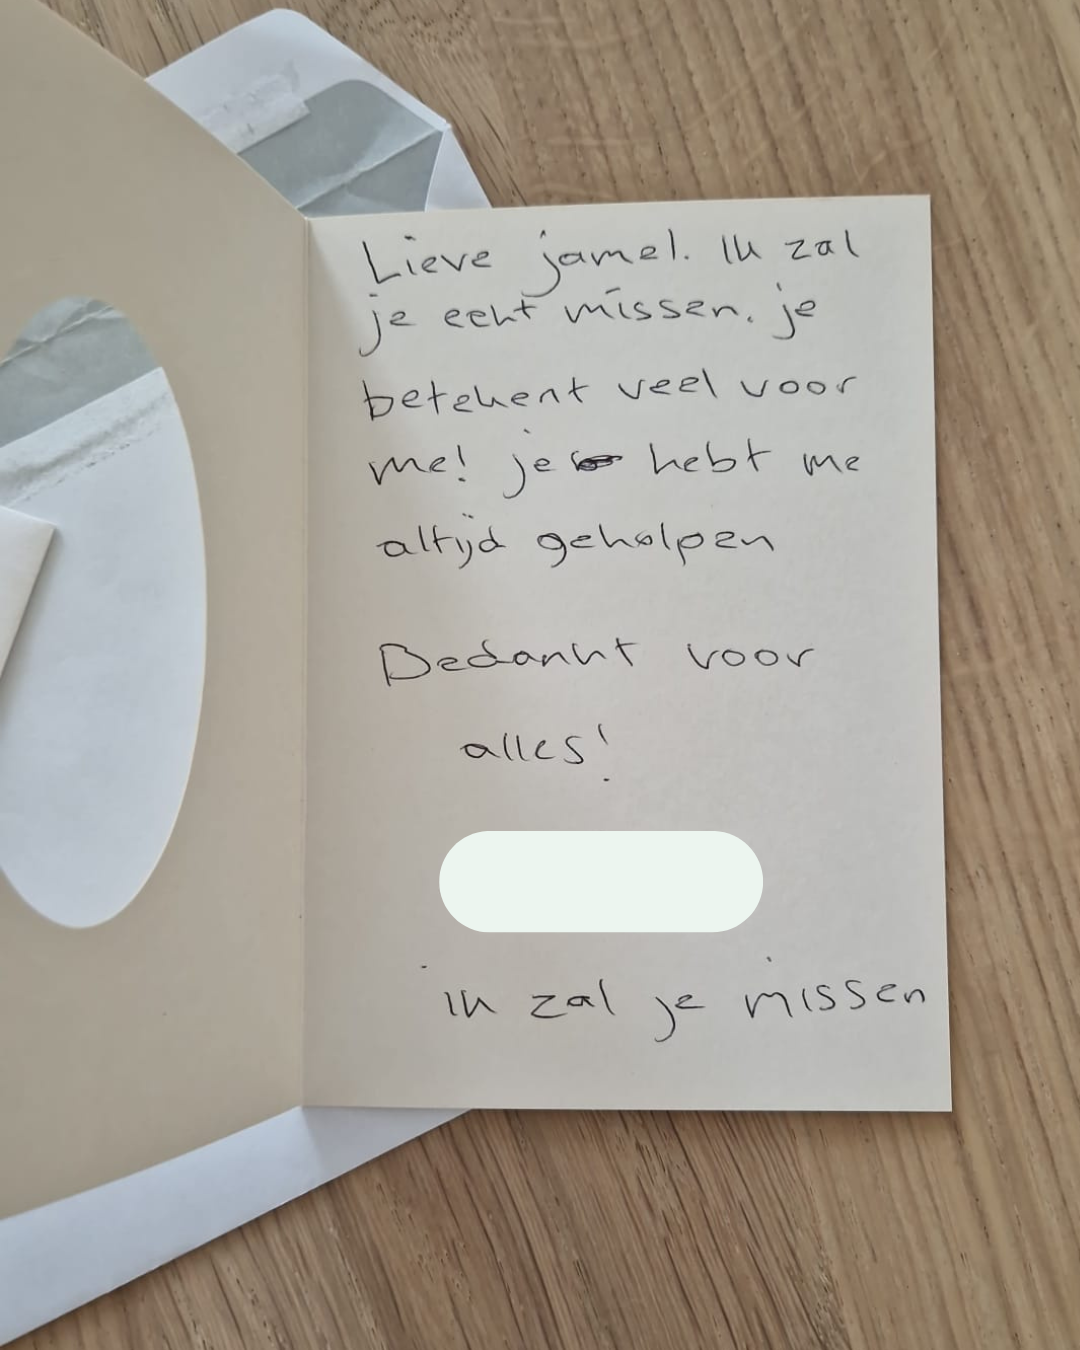 Lieve jamel. Ik zal
je echt missen. je
betekent veel voor
me! je hebt me
altijd geholpen
Bedankt voor
alles!
ik zal je missen